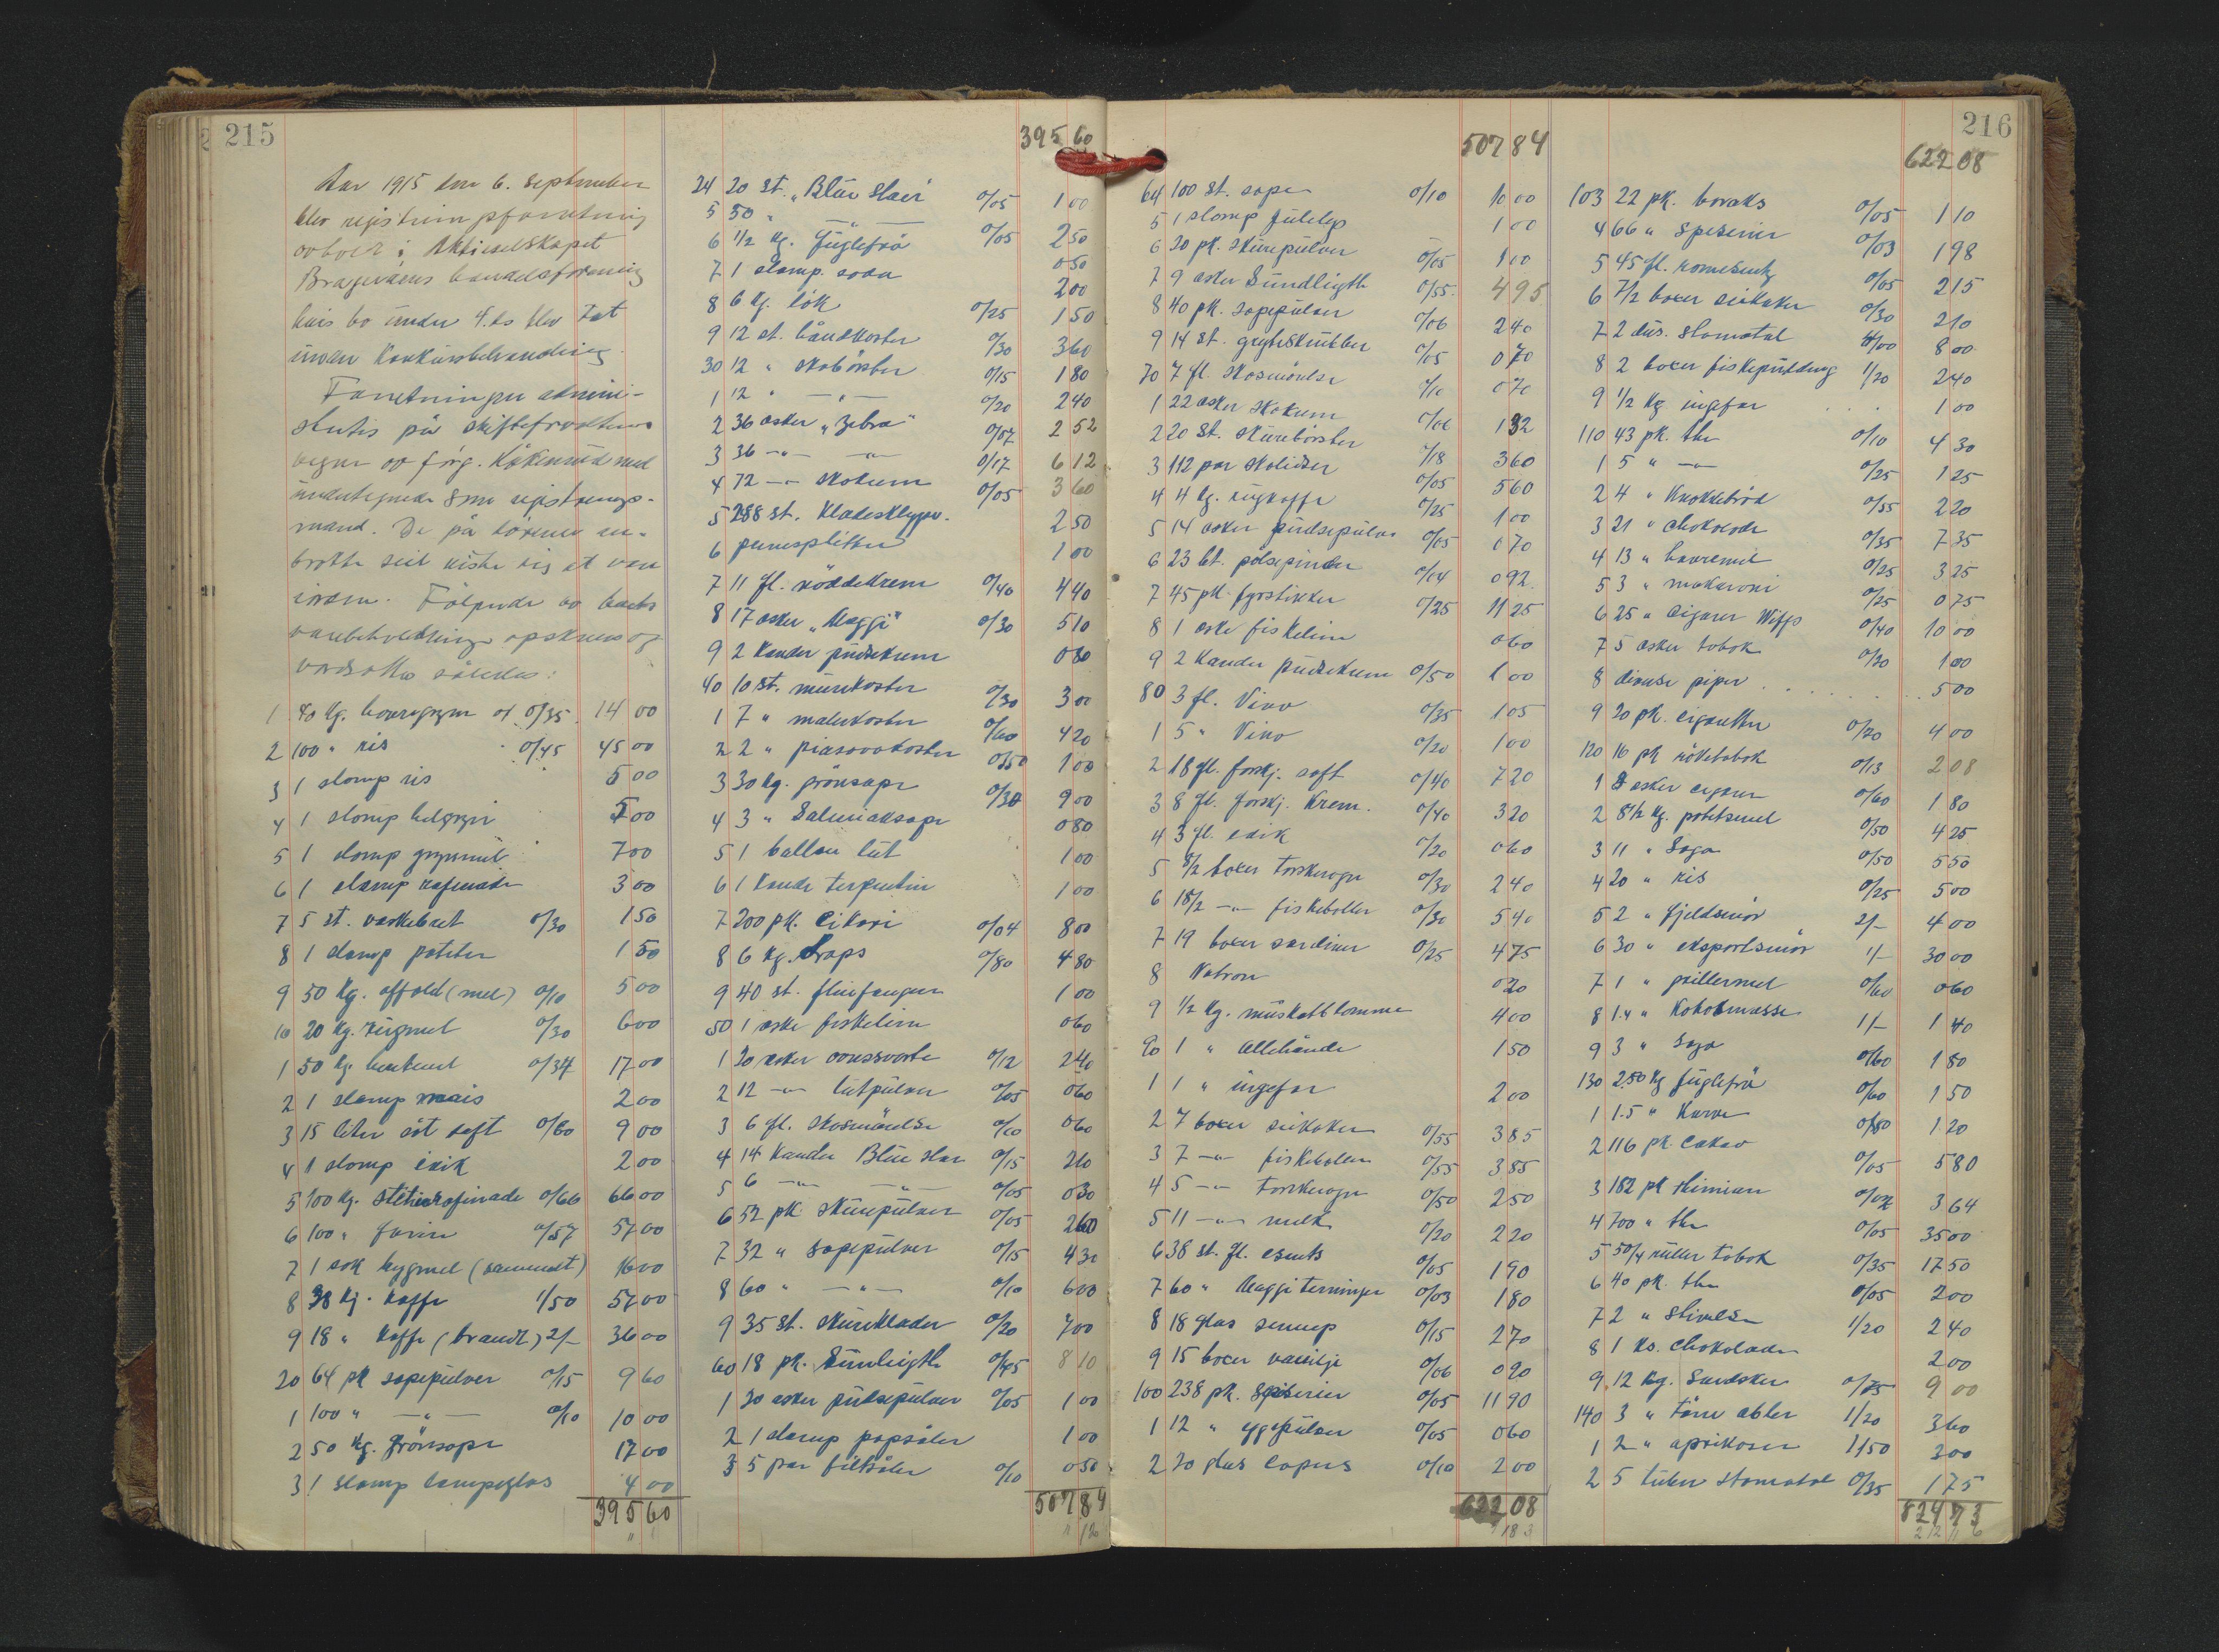 215
Aar 1915 den 6. september
blev registreringsforretning
avholt i Aktieselskapet
Bragernes handelsforening
hvis bo under 4. ds blev tat
under konkursbehandling.
Forretningen admini-
strertes på skifteforvalterens
vegne av førg. Kokkinnid med
undertegnede som registrerings-
mand. De på dørene an-
brakte seil viste sig at være
i orden. Følgende av boets
varebeholdning opskreves og
verdsattes således:
1 40 kg. havregryn at 0/35 14 00
2 100 " ris 0/45 45 00
3 1 slamp ris 5 00
4 1 slamp helgryn 5 00
5 1 slamp grynmel 7 00
6 1 slamp rafinade 3 00
7 5 st. vaskebret 0/30 1 50
8 1 slamp poteter 1 50
9 50 kg. affald (mel) 0/10 5 00
10 20 kg. rugmel 0/30 6 00
1 50 kg. hvetemel 0/34 17 00
2 1 slamp mais 2 00
3 15 liter søt saft 0/60 9 00
4 1 slamp edik 2 00
5 100 kg. stetierafinade 0/66 66 00
6 100 " farin 0/57 57 00
7 1 sæk bygmel (sammalt) 16 00
8 38 kg. kaffe 1/50 57 00
9 18 " kaffe (brændt) 2/- 36 00
20 64 pk sæpepulver 0/15 9 60
1 100 " — " — 0/10 10 00
2 50 kg. grønsæpe 17 00
3 1 slamp lampeglas 4 00
395 60
395 60
24 20 st. "Blue Star" 0/05 1 00
5 50 " — " — 0/05 2 50
6 1/2 kg. fuglefrø 0 50
7 1 slamp. soda 2 00
8 6 kg. løk 0/25 1 50
9 12 st. håndkoster 0/30 3 60
30 12 " skobørster 0/15 1 80
1 12 " — " — 0/20 2 40
2 36 æsker "Zebra" 0/07 2 52
3 36 — " — — " — 0/17 6 12
4 72 — " — skokrem 0/05 3 60
5 288 st. klædesklyper. 2 50
6 penesplitter 1 00
7 11 fl. röddekrem 0/40 4 40
8 17 æsker "Maggi" 0/30 5 10
9 2 kander pudsekrem 0 80
40 10 st. murekoster 0/30 3 00
1 7 " malerkoster 0/60 4 20
2 2 " piasavakoster 0/50 1 00
3 30 kg. grønsæpe 0/30 9 00
4 3 " Salmiaksæpe 0 80
5 1 ballon lut 1 00
6 1 kande terpentin 1 00
7 200 pk. Cikori 0/04 8 00
8 6 kg. Drops 0/80 4 80
9 40 st. fluefangere 1 00
50 1 æske fiskelim 0 60
1 20 æsker ovnssværte 0/12 2 40
2 12 — " — lutpulver 0/05 0 60
3 6 fl. skosmørelse 0/10 0 60
4 14 kander Blue Star 0/15 2 10
5 6 — " — — " — 0/05 0 30
6 52 pk skurepulver 0/05 2 60
7 32 " sæpepulver 0/15 4 30
8 60 " — " — 0/10 6 00
9 35 st. skureklæder 0/20 7 00
60 18 pk. Sunligth 0/45 8 10
1 20 æsker pudsepulver 0/05 1 00
2 1 slamp papsåler 1 00
3 5 par filtsåler 0/10 0 50
507 84
507 84
64 100 st. sæper 0/10 10 00
5 1 slamp julelys 1 00
6 20 pk. skurepulver 0/05 1 00
7 9 æsker Sundligth 0/55 4 95
8 40 pk. sæpepulver 0/06 2 40
9 14 st. gryteskrubber 0/05 0 70
70 7 fl. skosmörelse 0/10 0 70
1 22 æsker skokrem 0/06 1 32
2 20 st. skurebörster 0/18 3 60
3 112 par skolisser 0/05 5 60
4 4 kg. rugkaffe 0/25 1 00
5 14 æsker pudsepulver 0/05 0 70
6 23 bt. pølsepinder 0/04 0 92
7 45 pk. fyrstikker 0/25 11 25
8 1 æske fiskelim 0 60
9 2 kander pudsekrem 0/50 1 00
80 3 fl. Vino 0/35 1 05
1 5 " Vino 0/20 1 00
2 18 fl. forskj. saft 0/40 7 20
3 8 fl. forskj. krem. 0/40 3 20
4 3 fl. edik 0/20 0 60
5 8/2 bokser torskerogn 0/30 2 40
6 18/2 — " — fiskeboller 0/30 5 40
7 19 bokser sardiner 0/25 4 75
8 Natron 0 20
9 1/2 kg. muskatblomme 4 00
90 1 " Allehånde 1 50
1 1 " ingefær 2 00
2 7 bokser seikaker 0/55 3 85
3 7 — " — fiskeboller 0/55 3 85
4 5 — " — torskerogn 0/50 2 50
5 11 — " — melk 0/20 2 20
6 38 st. fl. esents 0/05 1 90
7 60 " Maggi terninger 0/03 1 80
8 18 glas sennep 0/15 2 70
9 15 bokser vanilje 0/06 0 90
100 238 pk. Spiserier 0/05 11 90
1 12 " eggepulver 0/05 0 60
2 20 glas Capers 0/10 2 00
622 08
183
216
622 08
103 22 pk. boraks 0/05 1 10
4 66 " spiserier 0/03 1 98
5 45 fl. romesents 0/05 2 15
6 7/2 bokser seikaker 0/30 2 10
7 2 dus. stomatol 4/00 8 00
8 2 bokser fiskepudding 1/20 2 40
9 1/2 kg. ingefær . . . 1 00
110 43 pk. the 0/10 4 30
1 5 " — " — 0/25 1 25
2 4 " Knækkebröd 0/55 2 20
3 21 " chokolade 0/35 7 35
4 13 " havremel 0/25 3 25
5 3 " makaroni 0/25 0 75
6 25 " Cigarer Wiffs 0/40 10 00
7 5 æsker tobak 0/20 1 00
8 diverse piper . . . . . . . 5 00
9 20 pk. cigaretter 0/20 4 00
120 16 pk röketobak 0/13 2 08
1 3 æsker cigarer 0/60 1 80
2 8 1/2 kg. potetmel 0/50 4 25
3 11 " Sago 0/50 5 50
4 20 " ris 0/25 5 00
5 2 " fjeldsmör 2/- 4 00
6 30 " eksportsmör 1/- 30 00
7 1 " pillermel 0/60 0 60
8 1.4 " Kokosmasse 1/- 1 40
9 3 " Sago 0/60 1 80
130 2.50 kg fuglefrö 0/60 1 50
1 1.5 " Karve 0/80 1 20
2 116 pk. Cakao 0/05 5 80
3 182 pk timian 0/02 3 64
4 700 " the 0/05 35 00
5 50/4 ruller tobak 0/35 17 50
6 40 pk. the 0/05 2 00
7 2 " stivelse 1/20 2 40
8 1 ks. Chokolade 2 00
9 12 kg. Svedsker 0/75 9 00
140 3 " tørre æbler 1/20 3 60
1 2 " aprikoser 1/50 3 00
2 5 tuber stomatol 0/35 1 75
824 73